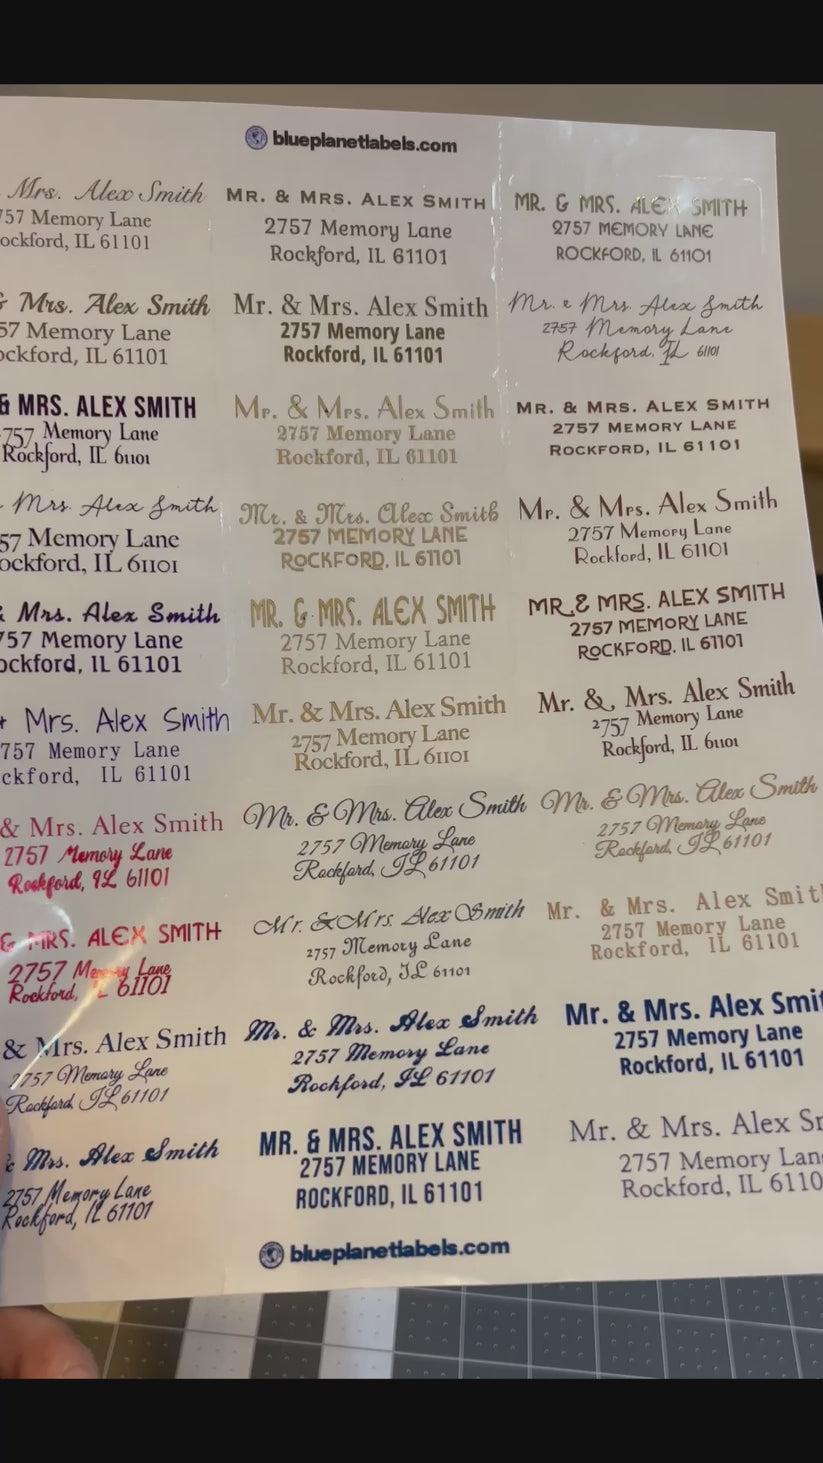 blueplanetlabels.com
Mrs. Alex Smith
757 Memory Lane
ockford, IL 61101
MR. & MRS. ALEX SMITH
2757 Memory Lane
Rockford, IL 61101
MR. & MRS. ALEX SMITH
2757 MEMORY LANE
ROCKFORD, IL 61101
& Mrs. Alex Smith
57 Memory Lane
ockford, IL 61101
Mr. & Mrs. Alex Smith
2757 Memory Lane
Rockford, IL 61101
Mr. & Mrs Alex Smith
2757 Memory Lane
Rockford, IL 61101
& MRS. ALEX SMITH
2757 Memory Lane
Rockford, IL 61101
Mr. & Mrs. Alex Smith
2757 Memory Lane
Rockford, IL 61101
MR. & MRS. ALEX SMITH
2757 MEMORY LANE
ROCKFORD, IL 61101
Mrs. Alex Smith
57 Memory Lane
ockford, IL 61101
Mr. & Mrs. Alex Smith
2757 MEMORY LANE
ROCKFORD, IL 61101
Mr. & Mrs. Alex Smith
2757 Memory Lane
Rockford, IL 61101
& Mrs. Alex Smith
757 Memory Lane
ockford, IL 61101
MR. & MRS. ALEX SMITH
2757 Memory Lane
Rockford, IL 61101
MR & MRS. ALEX SMITH
2757 MEMORY LANE
ROCKFORD, IL 61101
Mrs. Alex Smith
757 Memory Lane
ckford, IL 61101
Mr. & Mrs. Alex Smith
2757 Memory Lane
Rockford, IL 61101
Mr. & Mrs. Alex Smith
2757 Memory Lane
Rockford, IL 61101
& Mrs. Alex Smith
2757 Memory Lane
Rockford, IL 61101
Mr. & Mrs. Alex Smith
2757 Memory Lane
Rockford, IL 61101
Mr. & Mrs. Alex Smith
2757 Memory Lane
Rockford, IL 61101
& MRS. ALEX SMITH
2757 Memory Lane
Rockford, IL 61101
Mr. & Mrs. Alex Smith
2757 Memory Lane
Rockford, IL 61101
Mr. & Mrs. Alex Smit
2757 Memory Lane
Rockford, IL 61101
& Mrs. Alex Smith
2757 Memory Lane
Rockford, IL 61101
Mr. & Mrs. Alex Smith
2757 Memory Lane
Rockford, IL 61101
Mr. & Mrs. Alex Smit
2757 Memory Lane
Rockford, IL 61101
& Mrs. Alex Smith
2757 Memory Lane
Rockford, IL 61101
MR. & MRS. ALEX SMITH
2757 MEMORY LANE
ROCKFORD, IL 61101
Mr. & Mrs. Alex Sm
2757 Memory Lan
Rockford, IL 6110
blueplanetlabels.com